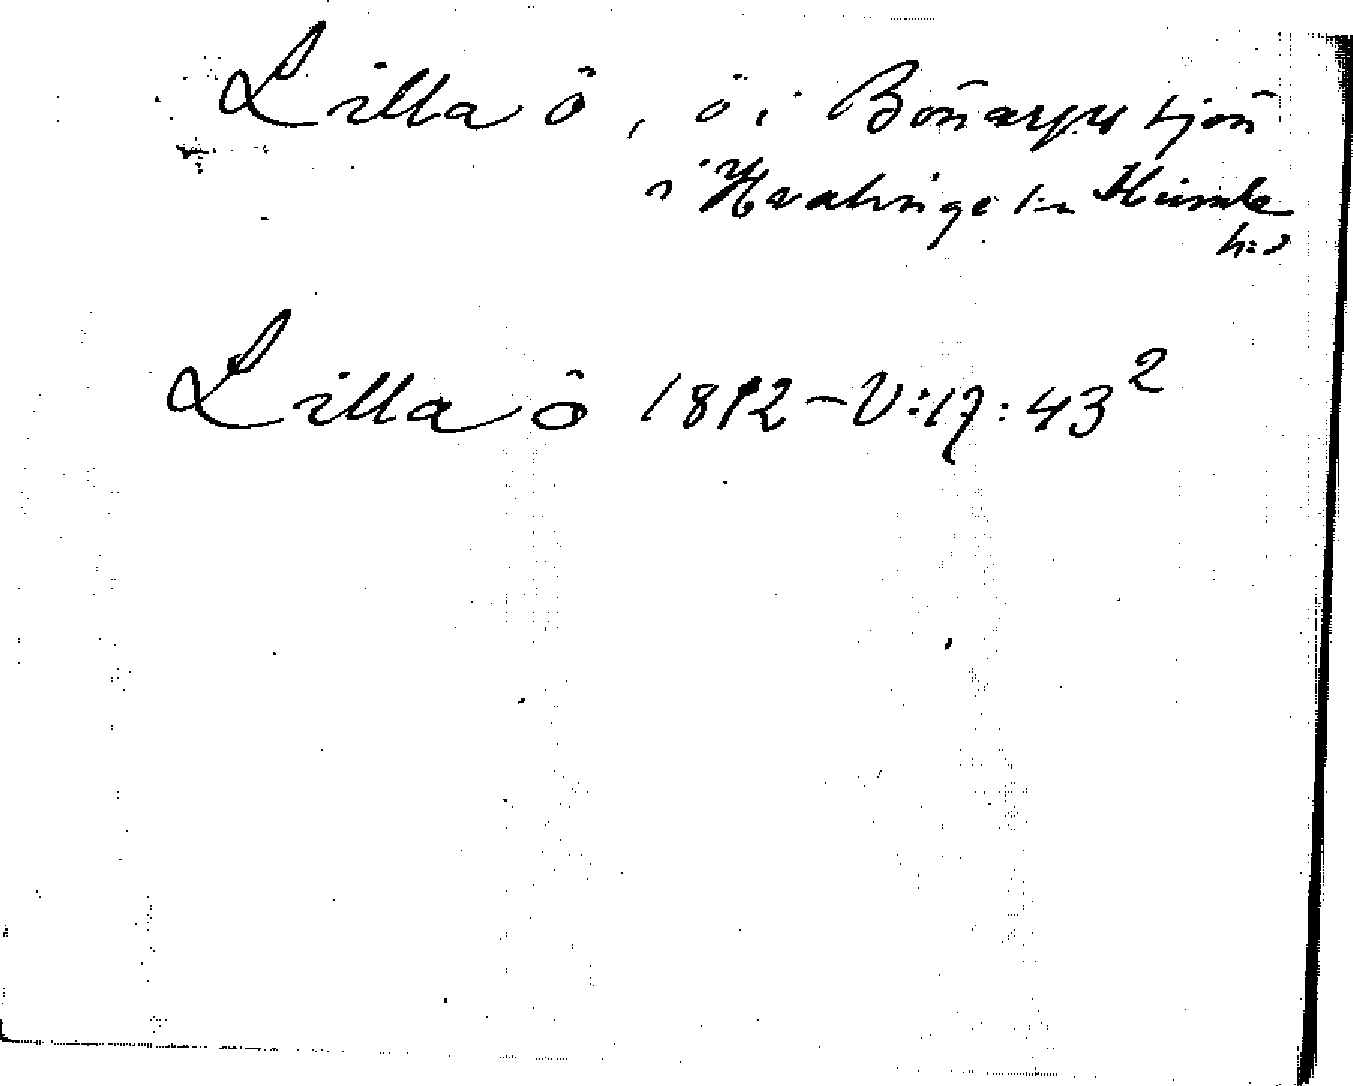 Lilla ö, ö i Bönarps sjön
i Kvalinge sn Himle
hd
Lilla ö 1812-V:17:43²